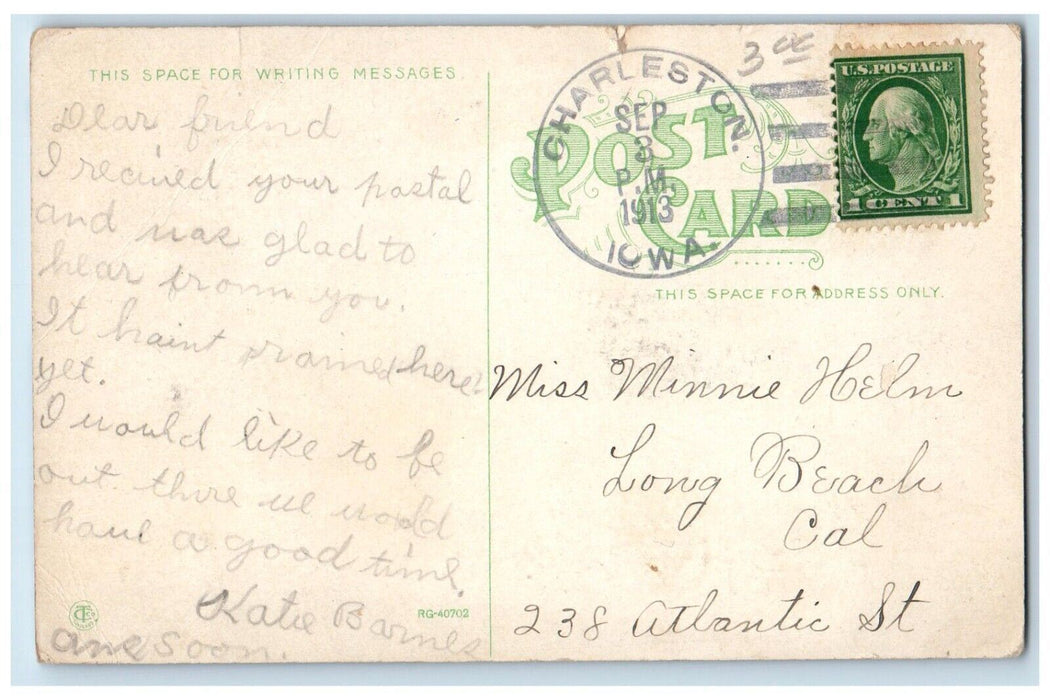 THIS SPACE FOR WRITING MESSAGES
Dear friend
I recived your postal
and was glad to
hear fromm you.
It haint rained here
yet.
I would like to be
out thire we would
have a good time.
Katie Barnes
ans soon.
RG-40702
POST CARD
CHARLESTON.
SEP
3
P.M.
1913
IOWA.
3 cc
U.S. POSTAGE
1 CENT 1
THIS SPACE FOR ADDRESS ONLY.
Miss Minnie Helm
Long Beach
Cal
238 Atlantic St